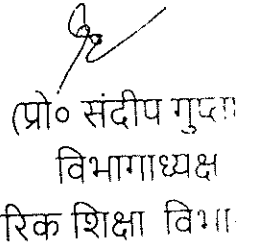 (प्रो० संदीप गुप्ता
विभागाध्यक्ष
रिक शिक्षा विभा